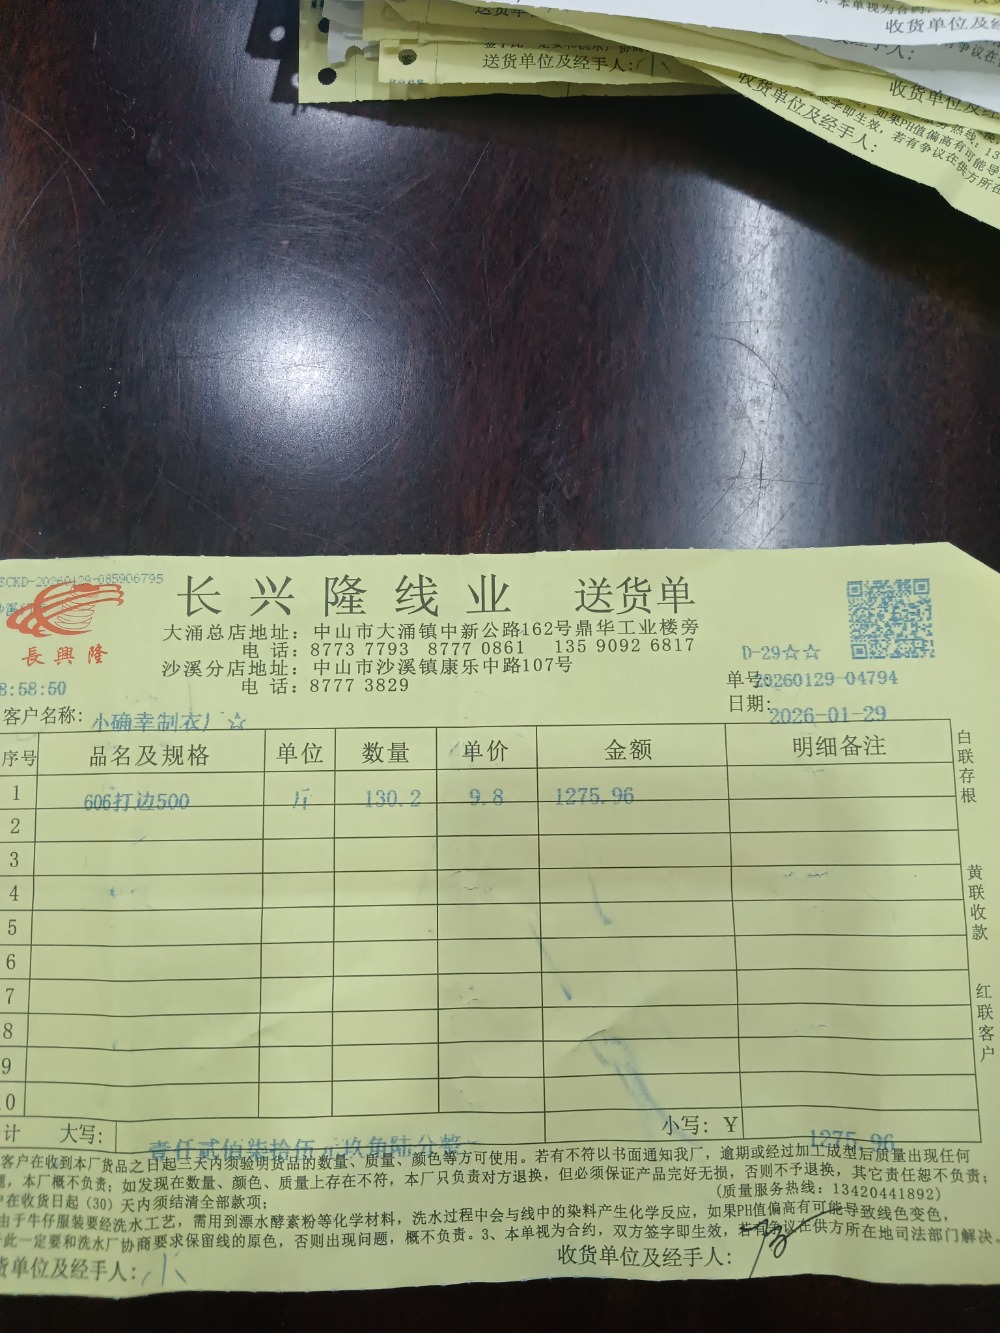 送货单位及经手人：
收货单位及
收货单位及经手人：
SCKD-20260129-085906795
长兴隆线业 送货单
長興隆
大涌总店地址：中山市大涌镇中新公路162号鼎华工业楼旁
电 话：8773 7793 8777 0861 135 9092 6817
沙溪分店地址：中山市沙溪镇康乐中路107号
电 话：8777 3829
D-29☆☆
8:58:50
单号:20260129-04794
日期: 2026-01-29
客户名称: 小确幸制衣厂☆
序号 品名及规格 单位 数量 单价 金额 明细备注
1 606打边500 斤 130.2 9.8 1275.96
2
3
4
5
6
7
8
9
0
计 大写: 壹仟贰佰柒拾伍元玖角陆分整 小写: Y 1275.96
白联存根
黄联收款
红联客户
客户在收到本厂货品之日起三天内须验明货品的数量、质量、颜色等方可使用。若有不符以书面通知我厂，逾期或经过加工成型后质量出现任何
，本厂概不负责；如发现在数量、颜色、质量上存在不符，本厂只负责对方退换，但必须保证产品完好无损，否则不予退换，其它责任恕不负责；
在收货日起（30）天内须结清全部款项； (质量服务热线：13420441892)
由于牛仔服装要经洗水工艺，需用到漂水酵素粉等化学材料，洗水过程中会与线中的染料产生化学反应，如果PH值偏高有可能导致线色变色，
此一定要和洗水厂协商要求保留线的原色，否则出现问题，概不负责。3、本单视为合约，双方签字即生效，若有争议在供方所在地司法部门解决。
货单位及经手人：小 收货单位及经手人：